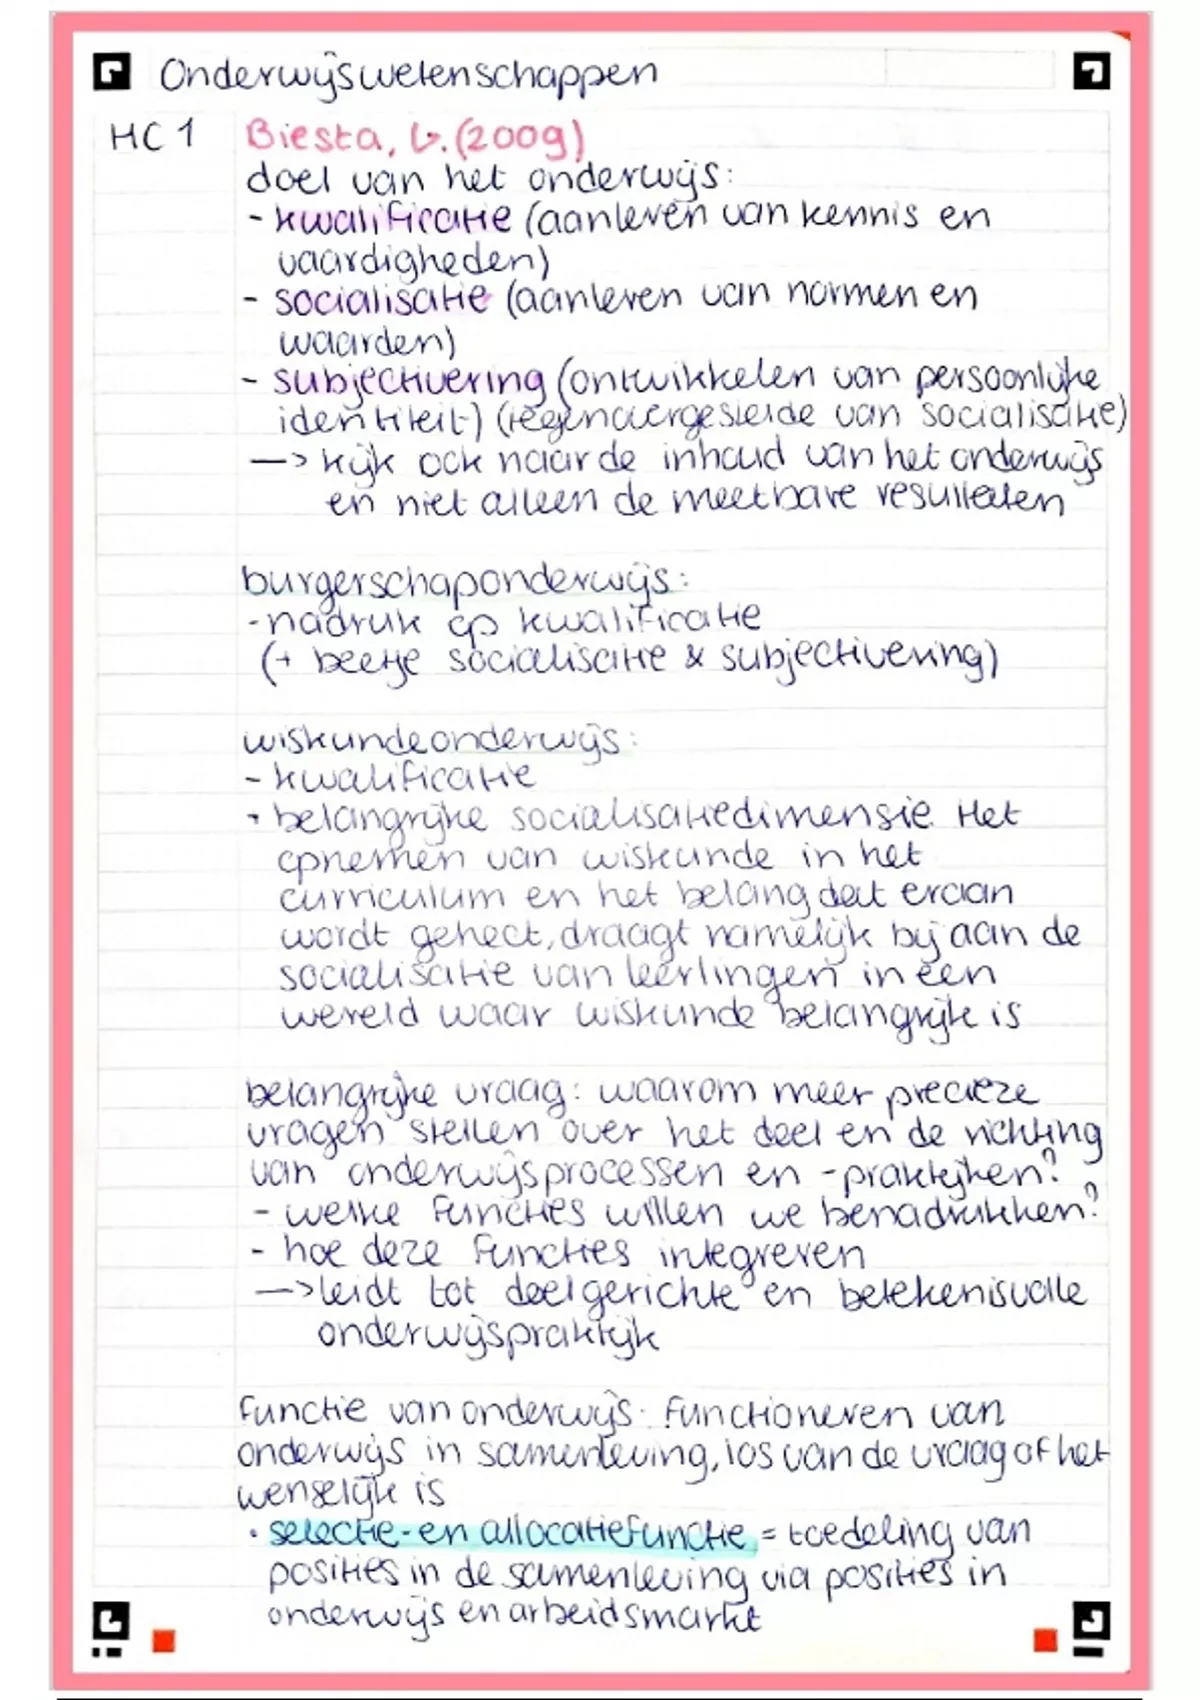 Onderwijswetenschappen
HC 1 Biesta, G. (2009)
doel van het onderwijs:
- kwalificatie (aanleren van kennis en
vaardigheden)
- socialisatie (aanleren van normen en
waarden)
- subjectivering (ontwikkelen van persoonlijke
identiteit) (tegenovergestelde van socialisatie)
—> kijk ook naar de inhoud van het onderwijs
en niet alleen de meetbare resultaten
burgerschaponderwijs:
- nadruk op kwalificatie
(+ beetje socialisatie & subjectivering)
wiskundeonderwijs:
- kwalificatie
- belangrijke socialisatiedimensie. Het
opnemen van wiskunde in het
curriculum en het belang dat eraan
wordt gehecht, draagt namelijk bij aan de
socialisatie van leerlingen in een
wereld waar wiskunde belangrijk is
belangrijke vraag: waarom meer precieze
vragen stellen over het doel en de richting
van onderwijsprocessen en -praktijken?
- welke functies willen we benadrukken?
- hoe deze functies integreren
—> leidt tot doelgerichte en betekenisvolle
onderwijspraktijk
functie van onderwijs: functioneren van
onderwijs in samenleving, los van de vraag of het
wenselijk is
• selectie- en allocatiefunctie = toedeling van
posities in de samenleving via posities in
onderwijs en arbeidsmarkt